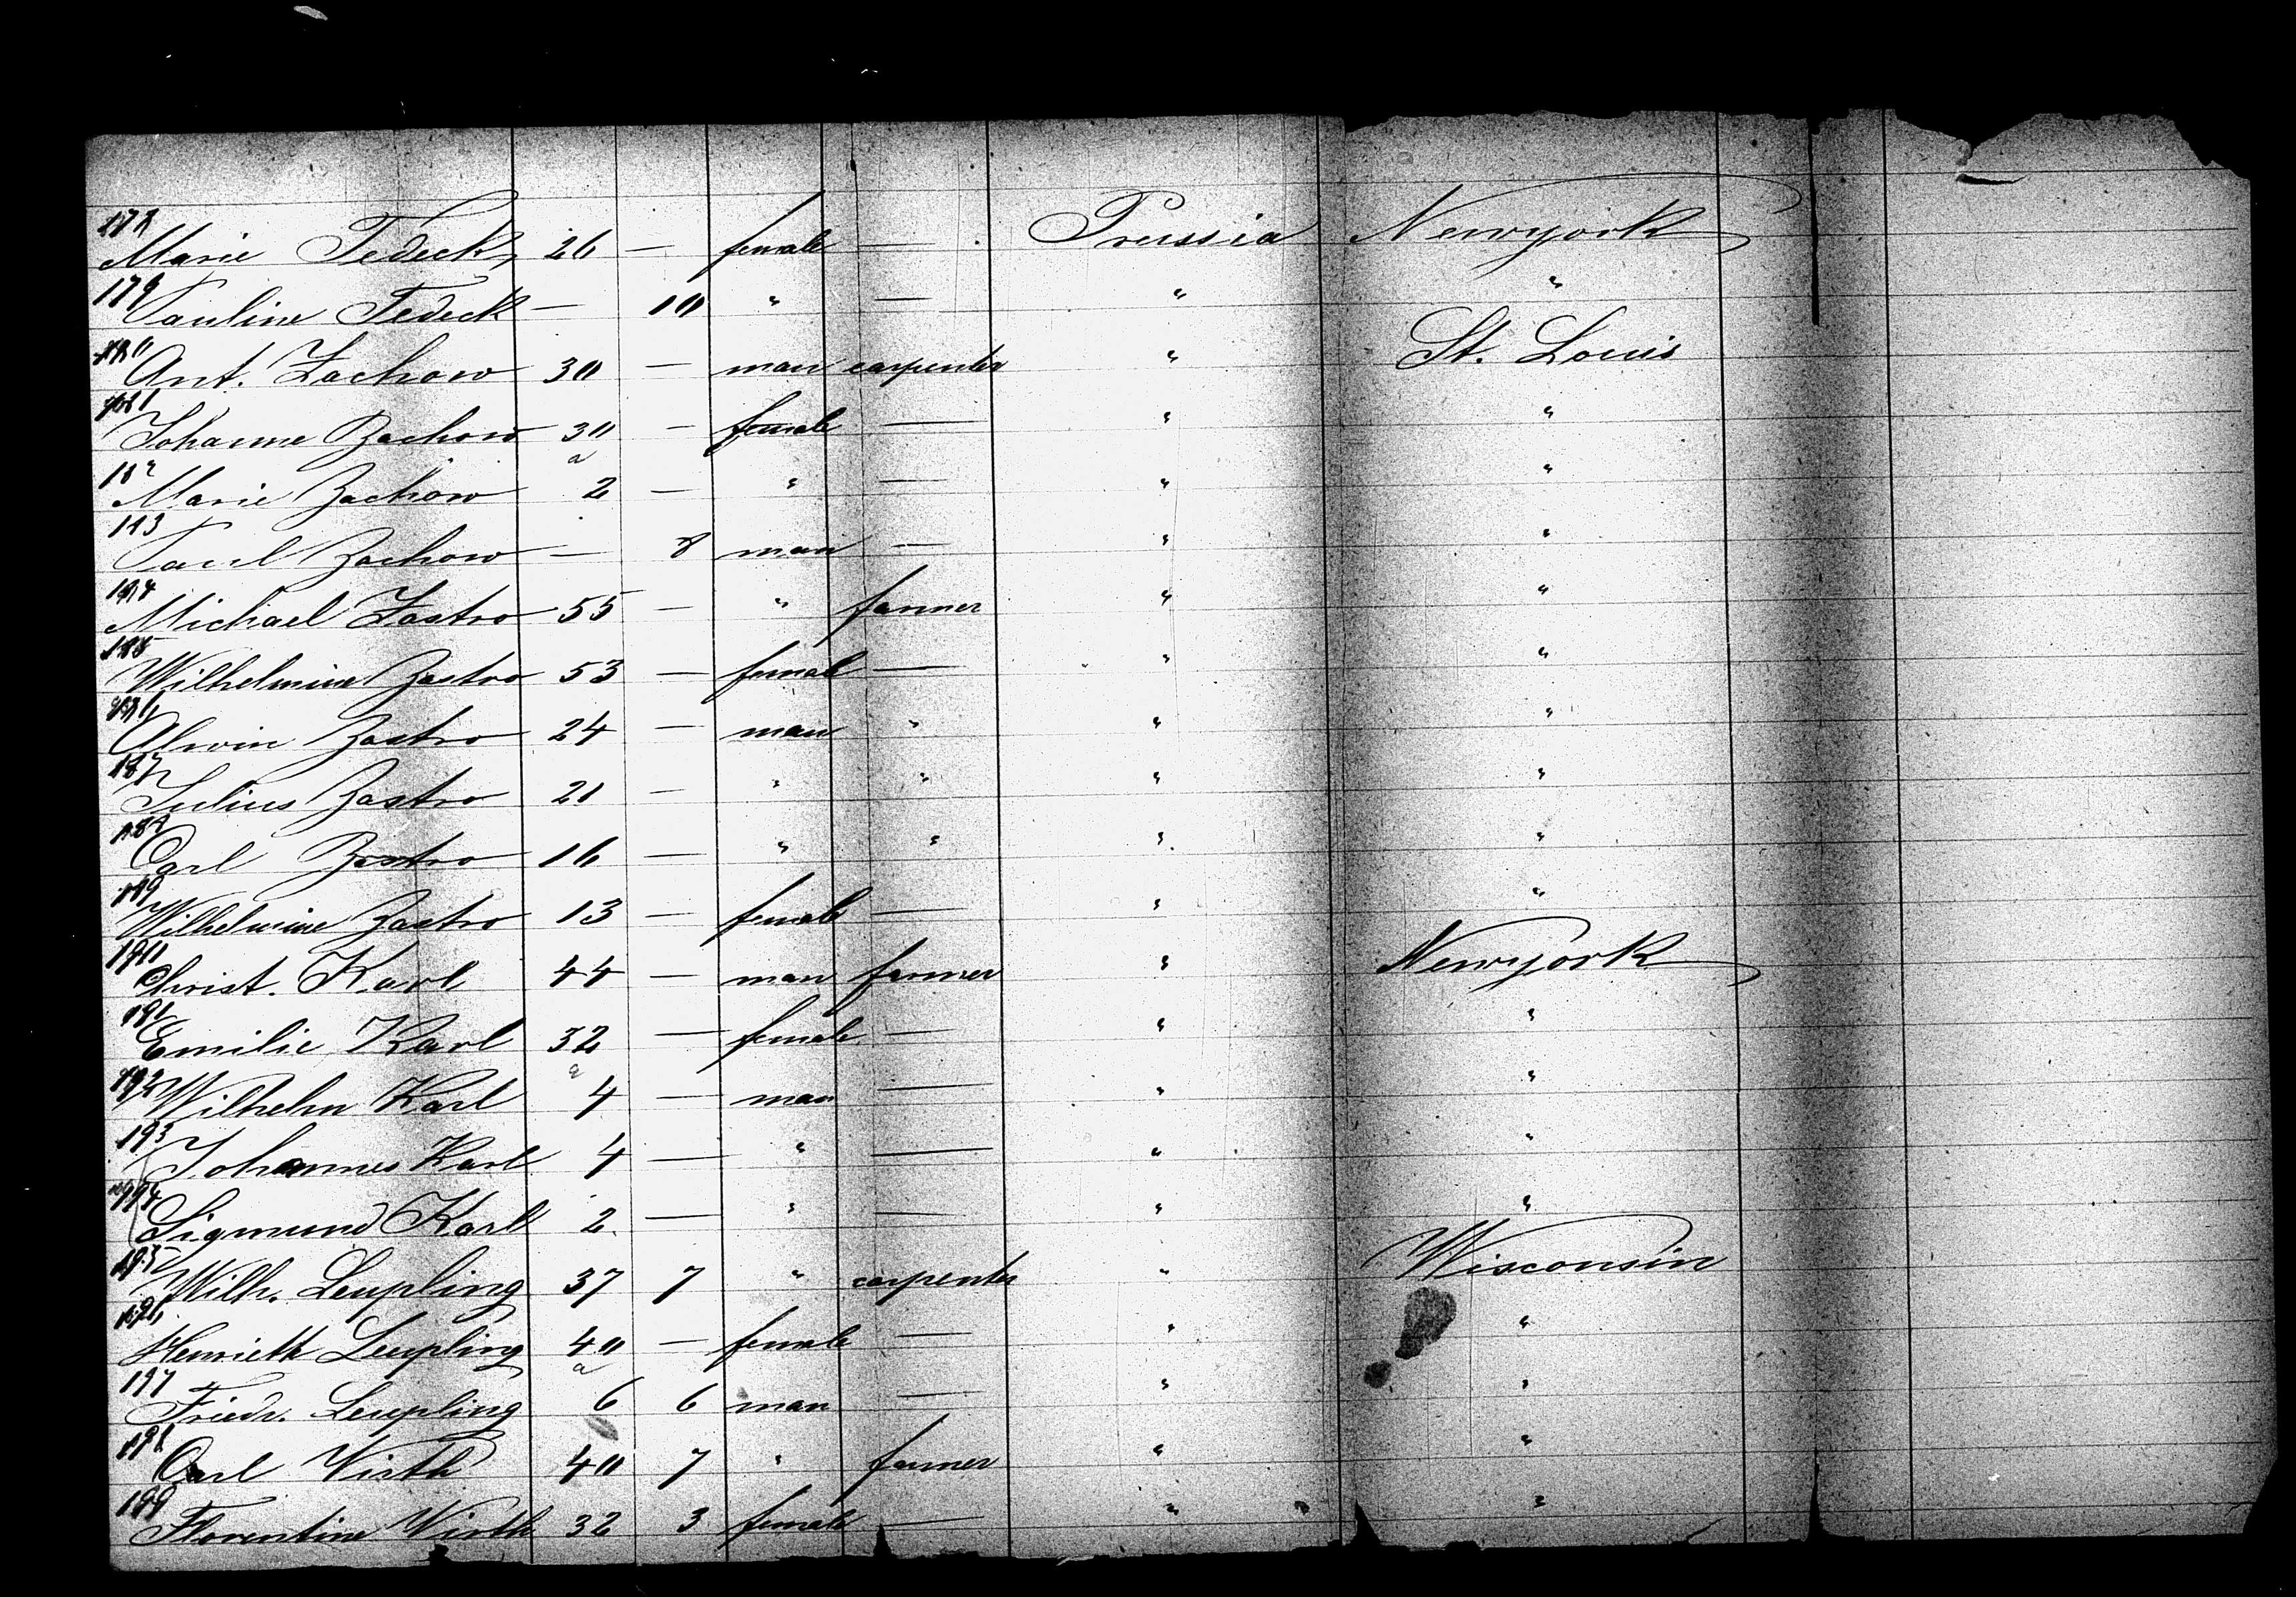 178
Marie Tedeck 26 — female — Prussia Newyork
179
Pauline Tedeck — 10 " — " "
180
Ant. Zachow 30 — man carpenter " St. Louis
181
Johanne Zachow 30 — female — " "
182
Marie Zachow 2 — " — " "
183
Paul Zachow — 8 man — " "
184
Michael Zastro 55 — " farmer " "
185
Wilhelmine Zastro 53 — female — " "
186
Alwin Zastro 24 — man " " "
187
Julius Zastro 21 — " " " "
188
Carl Zastro 16 — " " " "
189
Wilhelmine Zastro 13 — female — " "
190
Christ. Karl 44 — man farmer " Newyork
191
Emilie Karl 32 — female — " "
192
Wilhelm Karl 4 — man — " "
193
Johannes Karl 4 — " — " "
194
Sigmund Karl 2 — " — " "
195
Wilh. Leupling 37 7 " carpenter " Wisconsin
196
Henrieth Leupling 40 — female — " "
197
Friedr. Leupling 6 6 man — " "
198
Carl Wirth 40 7 " farmer " "
199
Florentine Wirth 32 3 female — " "